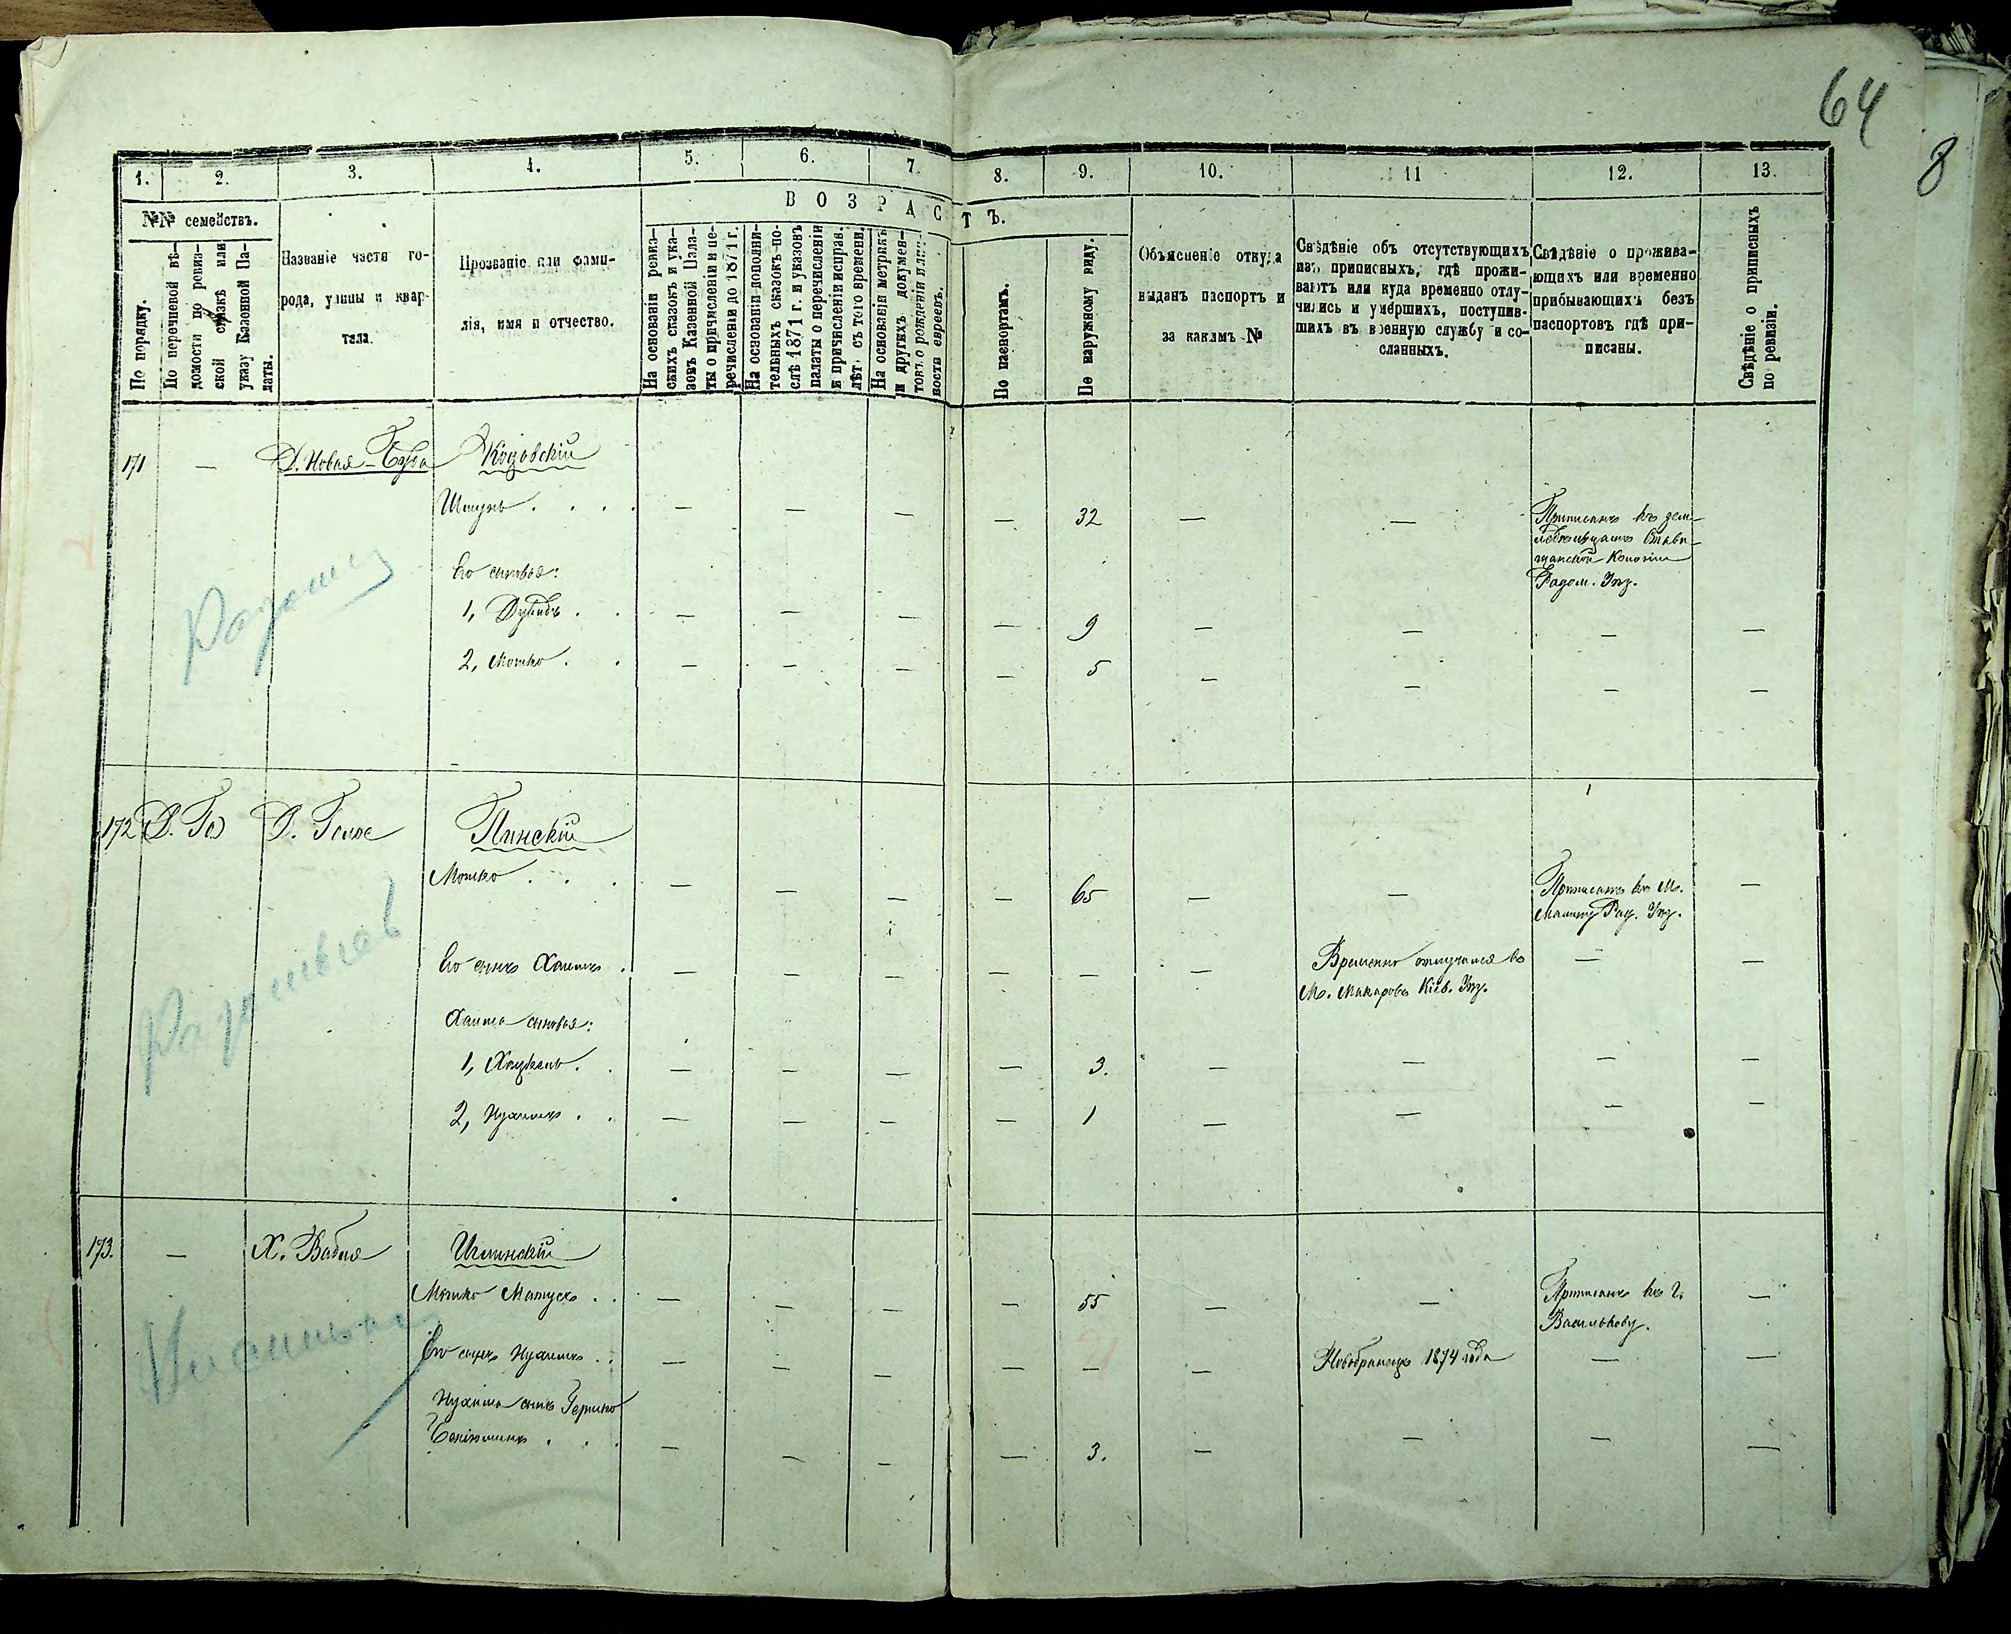 64
8
1.
2.
3.
4.
5.
6.
7.
8.
9.
10.
11
12.
13.
№№ семействъ.
ВОЗРАСТЪ.
По порядку.
По перечневой вѣ-
домости по ревиз-
ской сказкѣ или
указу Казенной Па-
латы.
Названіе части го-
рода, улицы и квар-
тала.
Прозваніе или фами-
лія, имя и отчество.
На основаніи ревиз-
скихъ сказокъ и ука-
зовъ Казенной Пала-
ты о причисленіи и пе-
речисленіи до 1871 г.
На основаніи дополни-
тельныхъ сказокъ по-
слѣ 1871 г. и указовъ
палаты о перечисленіи
и причисленіи исправ.
лѣтъ съ того времени.
На основаніи метрикъ
и другихъ докумен-
товъ о рожденіи
ности евреевъ.
По паспортамъ.
По наружному виду.
Объясненіе откуда
выданъ паспортъ и
за какимъ №
Свѣдѣніе объ отсутствующихъ
изъ приписныхъ, гдѣ прожи-
ваютъ или куда временно отлу-
чились и умершихъ, поступив-
шихъ въ военную службу и со-
сланныхъ.
Свѣдѣніе о прожива-
ющихъ или временно
прибывающихъ безъ
паспортовъ гдѣ при-
писаны.
Свѣдѣніе о приписныхъ
по ревизіи.
171 — Д. Новая-Буда Козовскій
— — — — 32 — — Приписанъ къ зем-
Колоніи
Радом. Уѣз.
Его сыновья:
1, — — — — 9 — — — —
2, Мошко — — — — 5 — — — —
172 Д. Го Д. Голое Пинскій
Мошко — — — — 65 — — Приписанъ къ М. —
Малину Рад. Уѣз.
Его сынъ Хаимъ — — — — — — Временно отлучился въ — —
М. Макаровъ Кіев. Уѣз.
Хаима сыновья:
1, — — — — 3. — — — —
2, Нухимъ — — — — 1 — — — —
173. — Х. Вабля
Мошко — — — — 55 — — Приписанъ къ г. —
Василькову.
Его сынъ Нухимъ — — — — — — Новобранецъ 1874 года — —
Нухима сынъ Гершко
Беніоминъ — — — — 3. — — — —